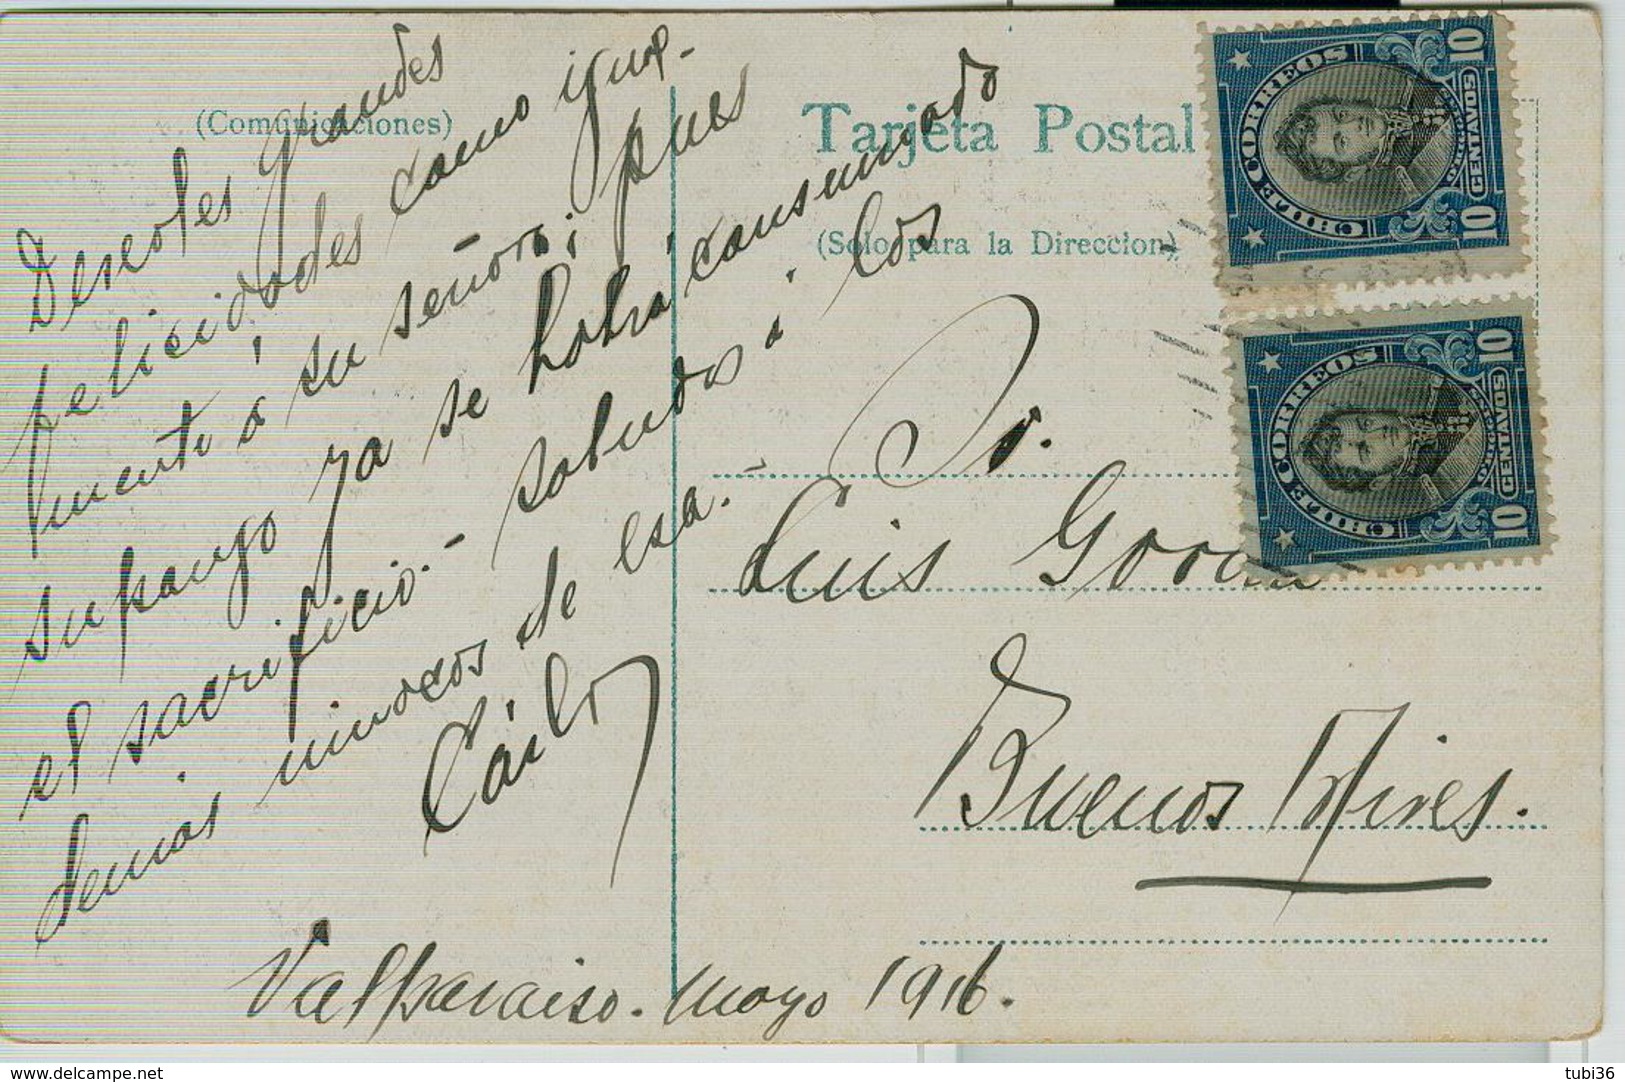 (Comunicaciones)
Deseoles grandes
felicidades como igual-
mente á su señora; pues
supongo ya se habrá consumado
el sacrificio.- saludos á los
demás de esa.
Cárlos
Valparaiso. mayo 1916.
Tarjeta Postal
(Solo para la Direccion)
Sr.
Luis
Buenos Aires.
CORREOS
CHILE
10 CENTAVOS 10
CORREOS
CHILE
10 CENTAVOS 10
www.delcampe.net
tubi36